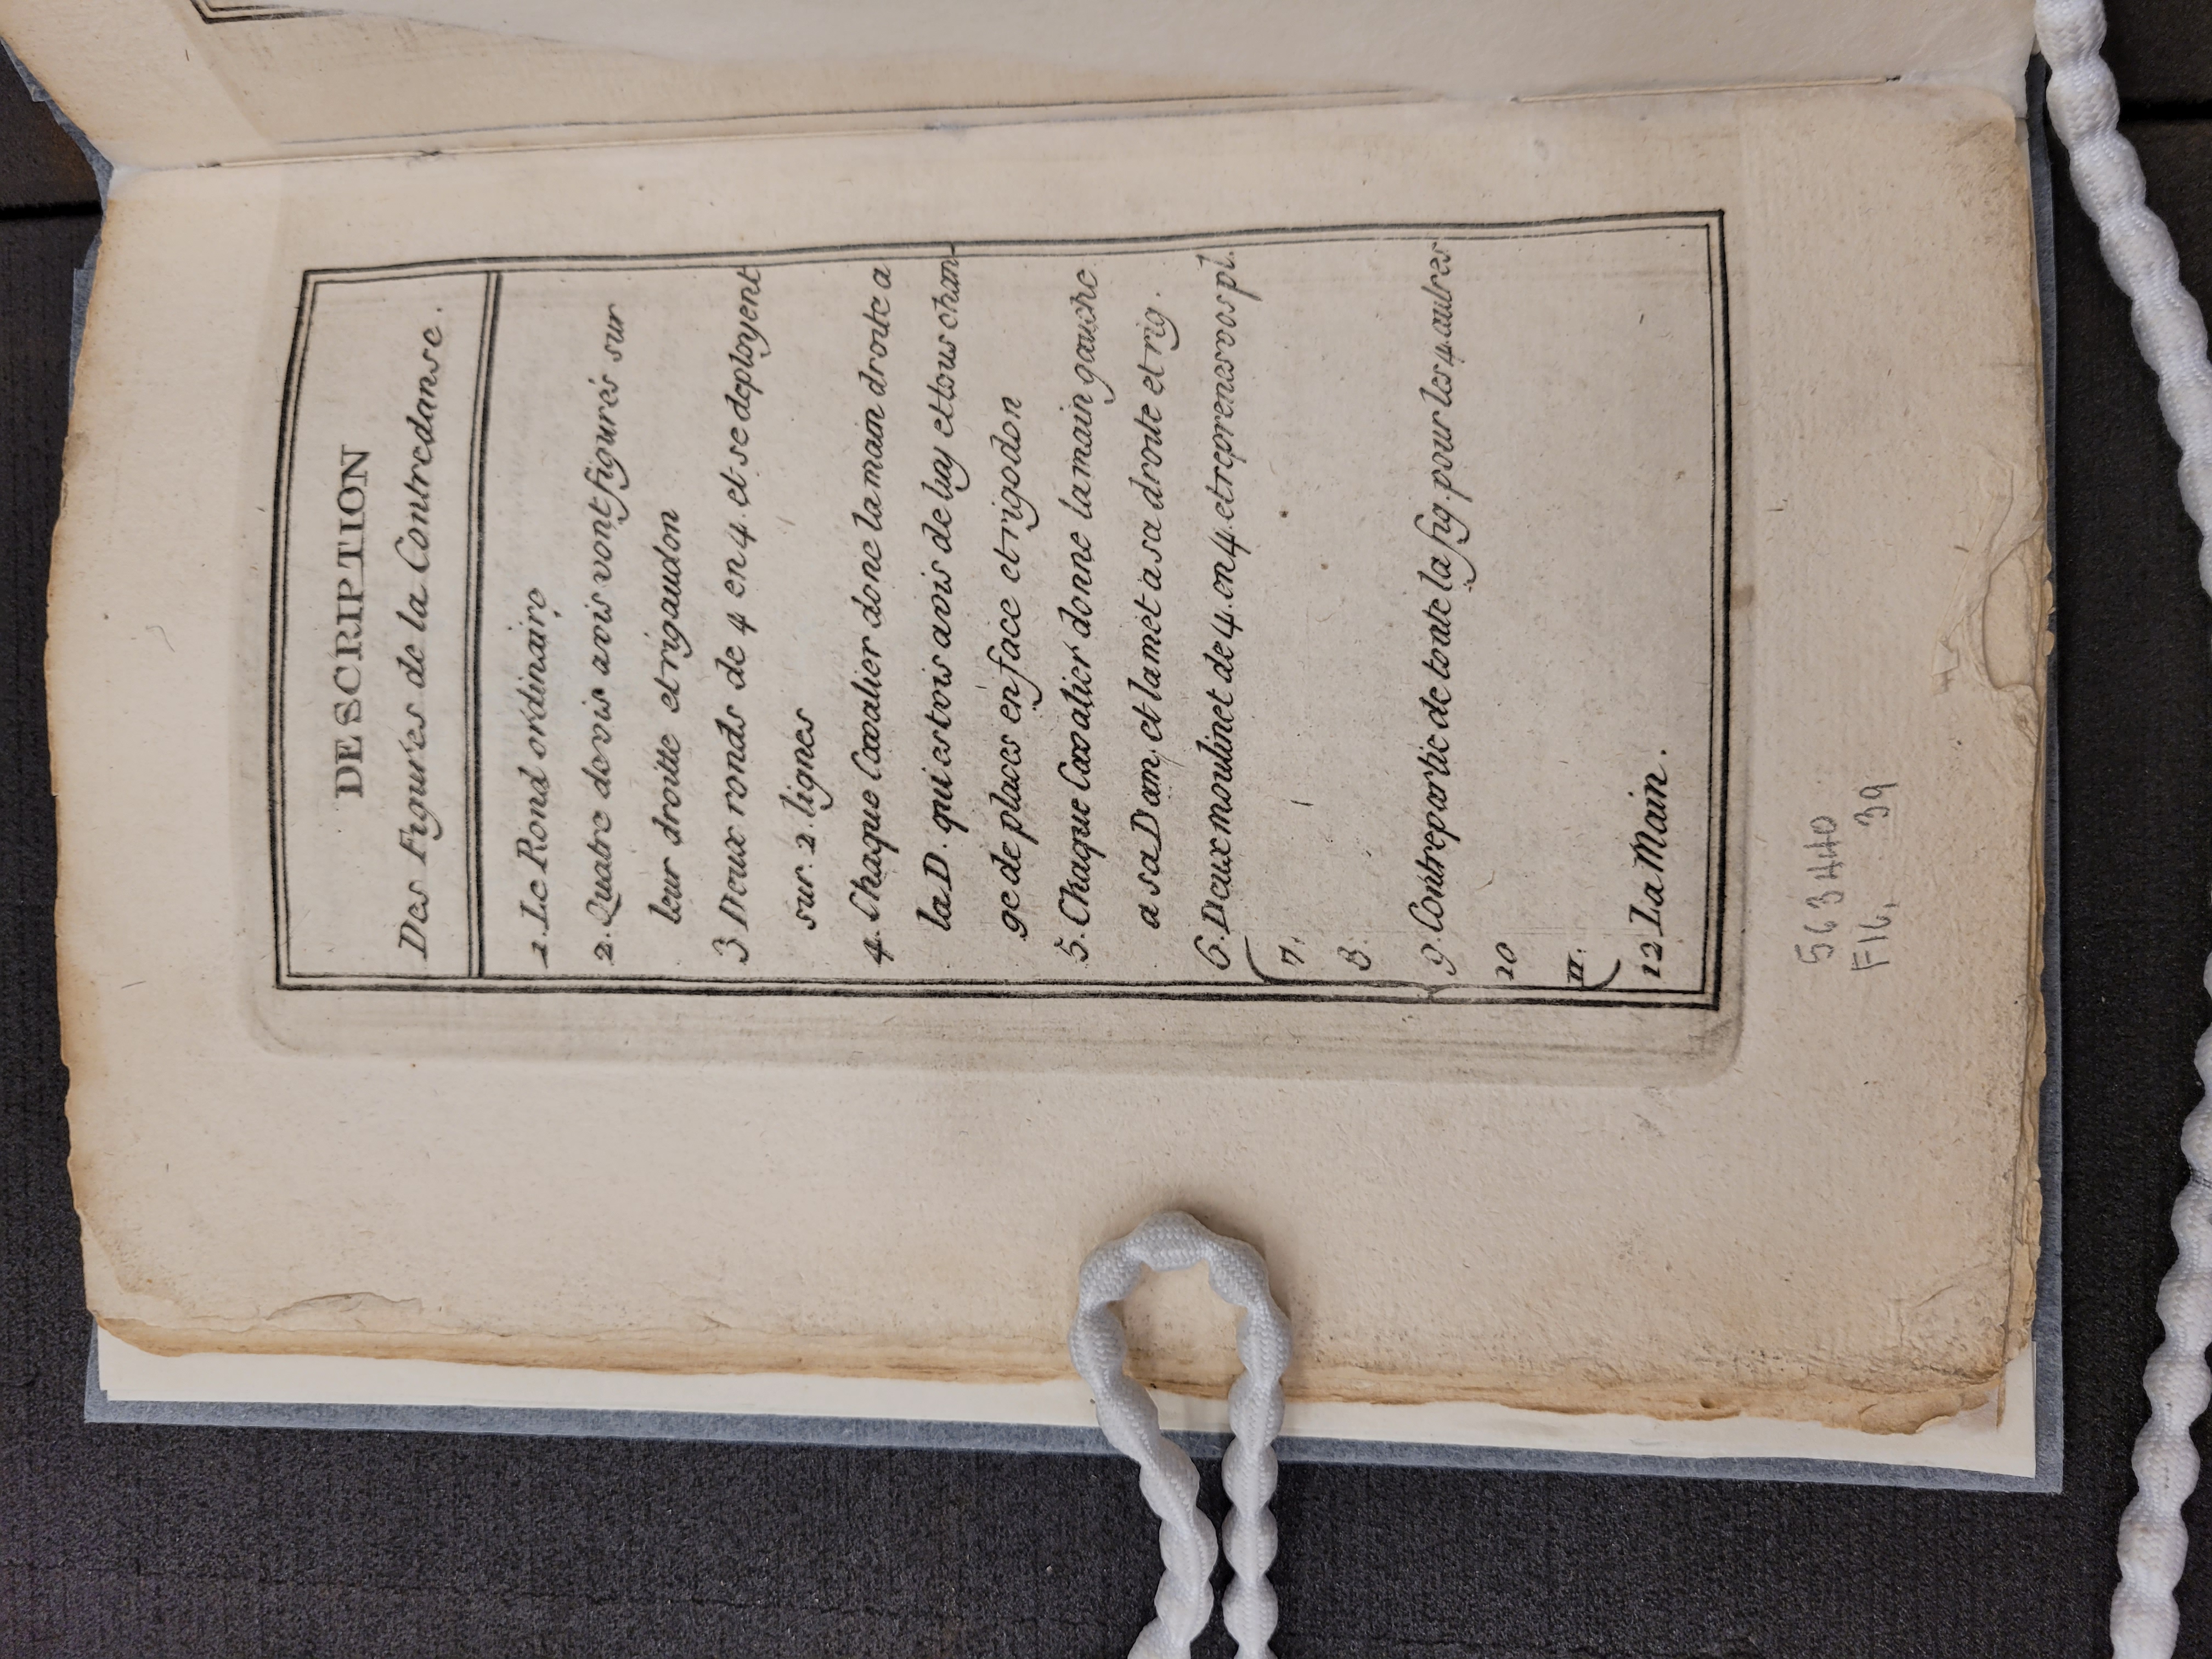 DESCRIPTION
Des Figures de la Contredanse.
1. Le Rond ordinaire
2. Quatre devis avis vont figurés sur
leur droitte et rigaudon
3 Deux ronds de 4 en 4. et se deployent
sur. 2. lignes
4. Chaque Cavalier done la main droite a
la D. qui est vis avis de luy et tous chan-
ge de places en face et rigodon
5. Chaque Cavalier donne la main gauche
a sa Dam. et la met a sa droite et rig.
6. Deux moulinet de 4. en 4. et reprenes vos pl.
7.
8.
9. Contrepartie de toute la fig. pour les 4. autres
10
11.
12 La Main.
563440
F16, 39